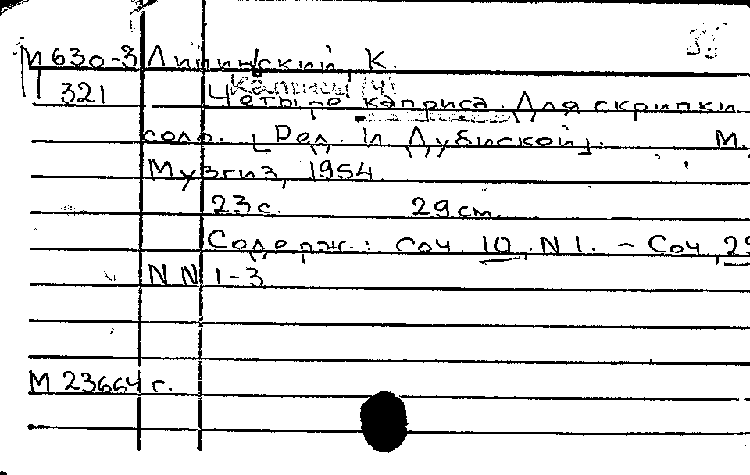 М630-3 Липинский, К.
321 Четыре каприса. Для скрипки
соло. [Ред. И Дубинской]. М.
Музгиз, 1954.
23 с. 29 см.
Содерж.: Соч. 10, N 1. – Соч. 29
NN 1-3
М 23664 г.